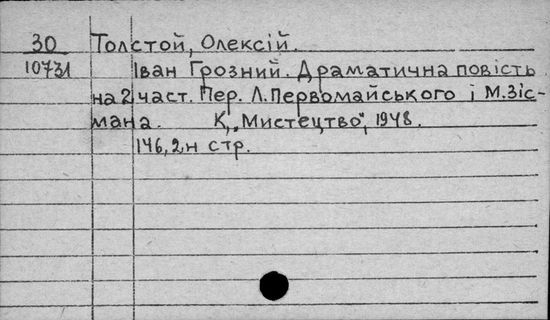 30 Толстой, Олексій.
10731 Іван Грозний. Драматична повість
на 2 част. Пер. Л.Первомайського і М.Зіс-
мана. К, „Мистецтво", 1948.
146, 2н стр.